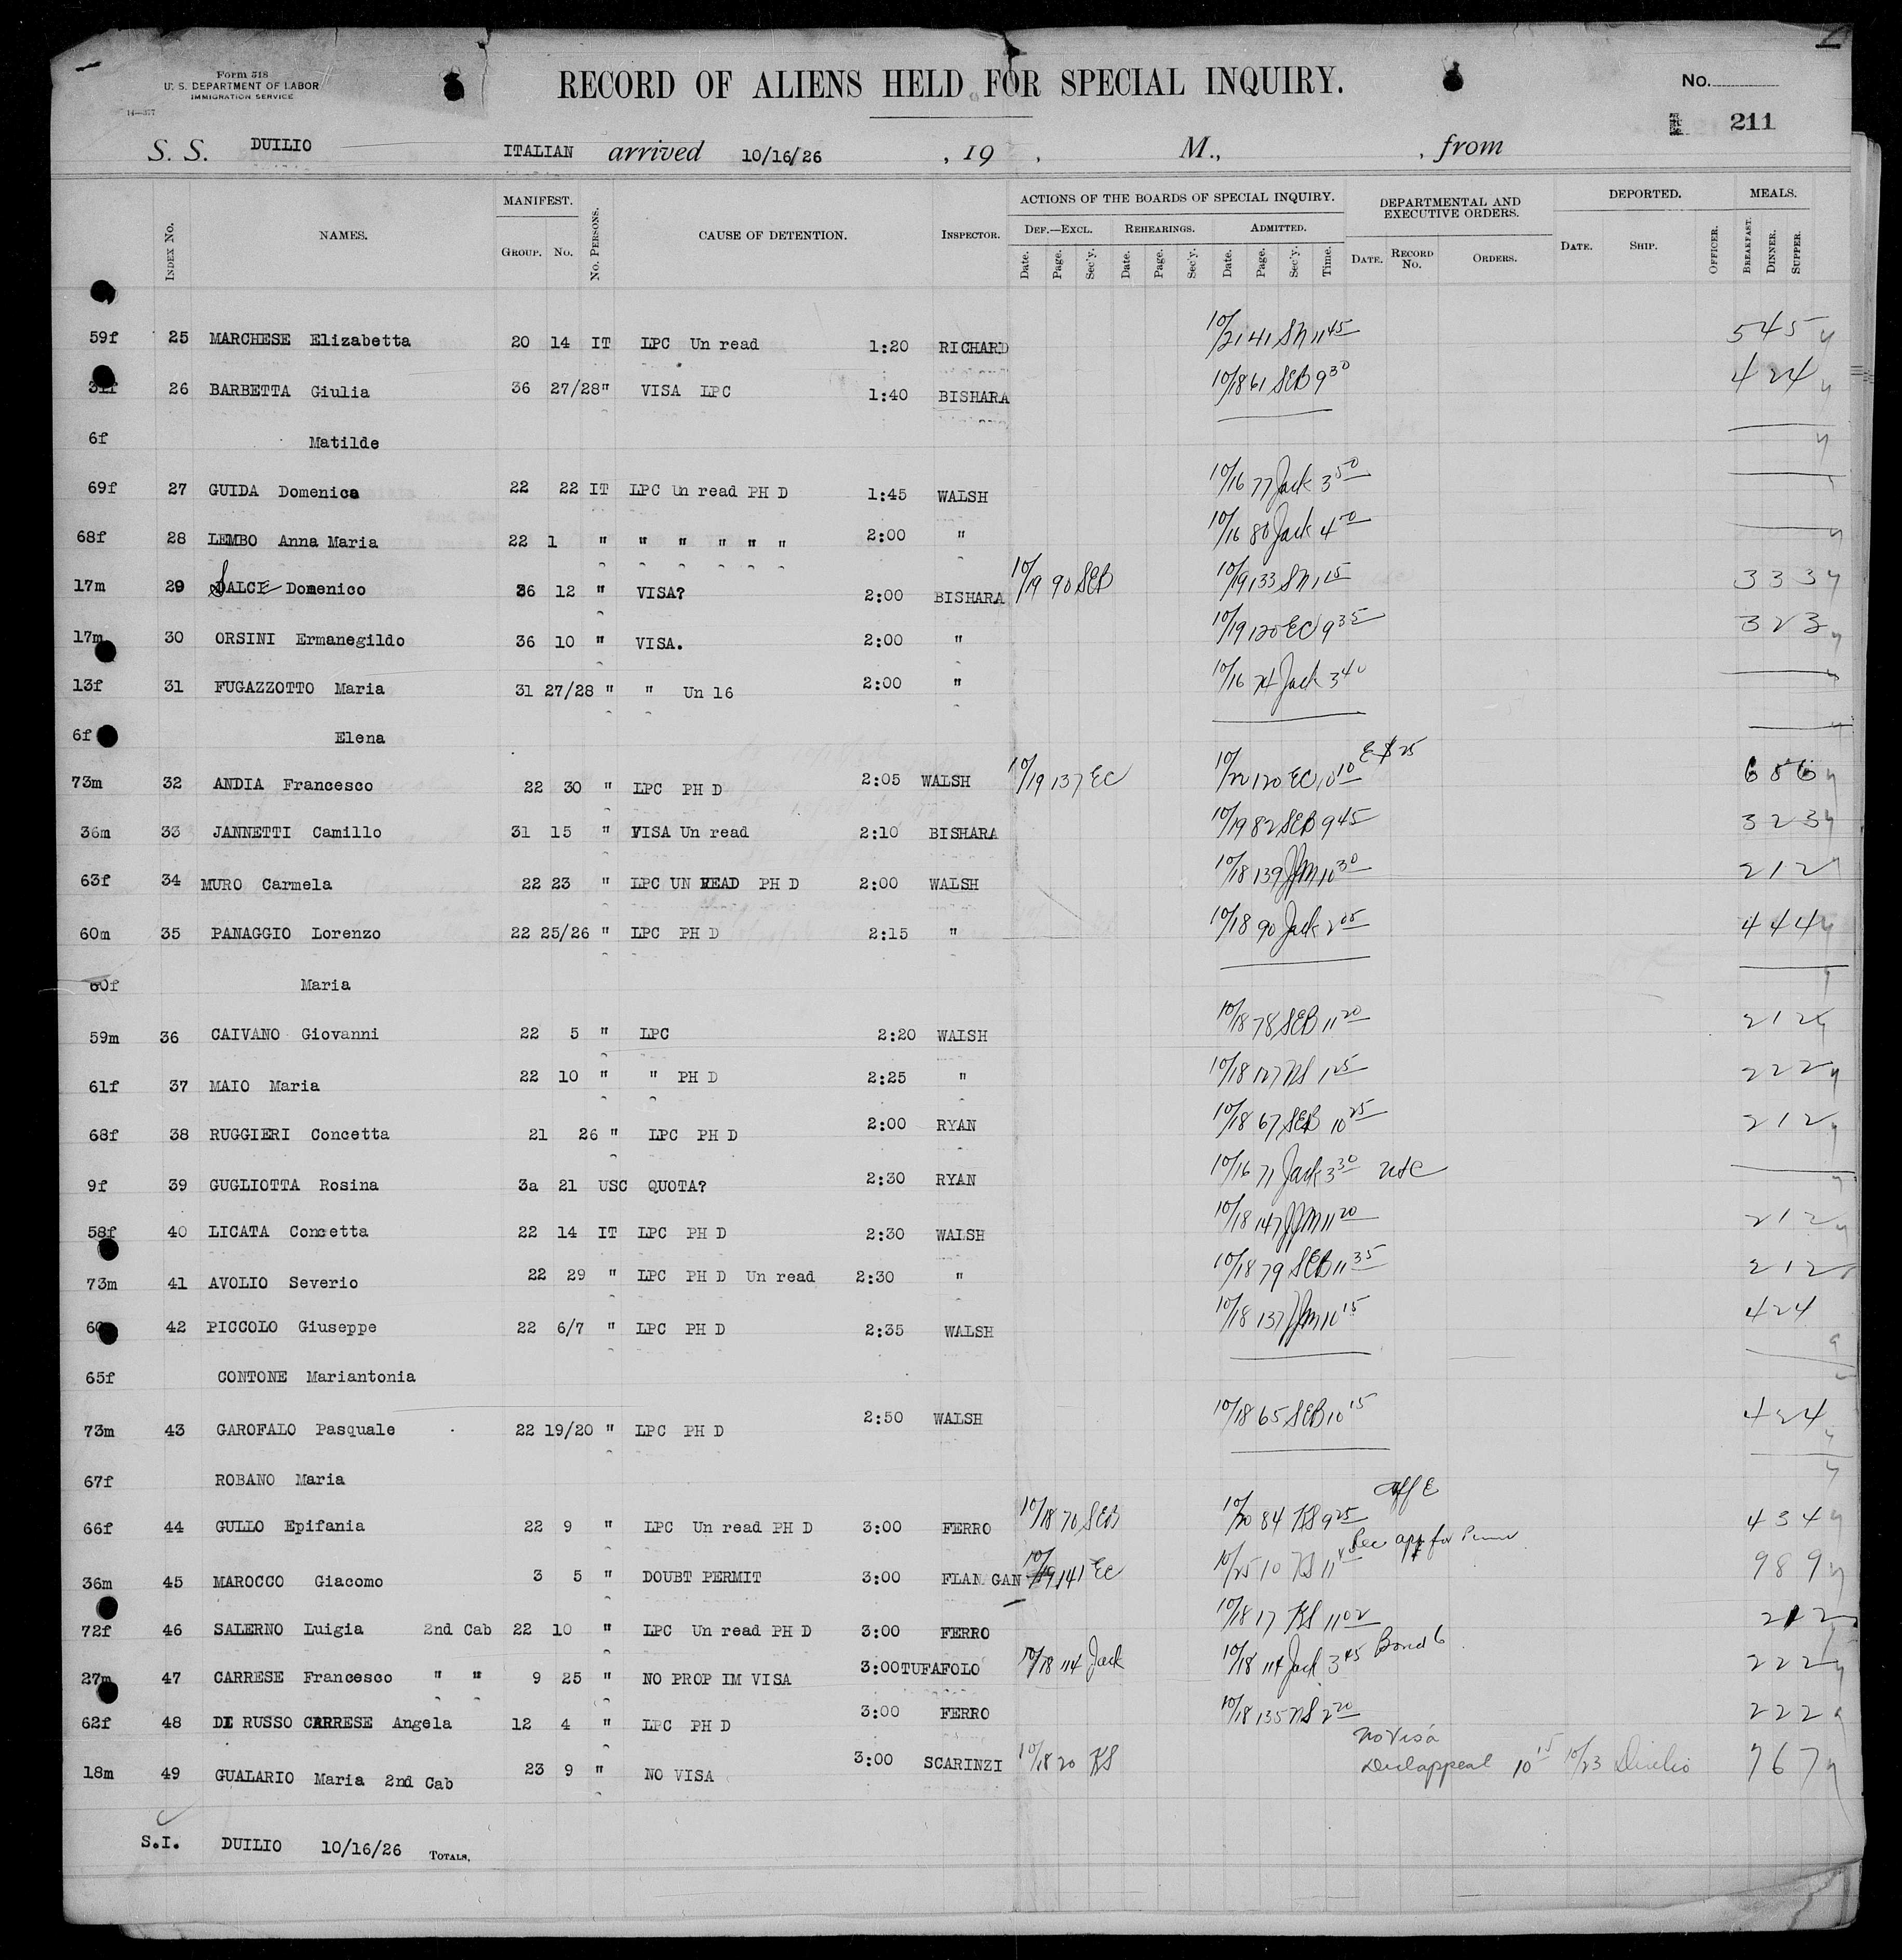 Form 518
U. S. DEPARTMENT OF LABOR
IMMIGRATION SERVICE
14—377
RECORD OF ALIENS HELD FOR SPECIAL INQUIRY.
No.
211
S. S. DUILIO ITALIAN arrived 10/16/26 , 19 , M., , from
Index No. NAMES. MANIFEST. Group. No. No. Persons. CAUSE OF DETENTION. Inspector. ACTIONS OF THE BOARDS OF SPECIAL INQUIRY. Def.—Excl. Date. Page. Sec'y. Rehearings. Date. Page. Sec'y. Admitted. Date. Page. Sec'y. Time. DEPARTMENTAL AND EXECUTIVE ORDERS. Date. Record No. Orders. DEPORTED. Date. Ship. Officer. MEALS. Breakfast. Dinner. Supper.
59f 25 MARCHESE Elizabetta 20 14 IT LPC Un read 1:20 RICHARD 10/21 41 SN 11 45 5 4 5
26 BARBETTA Giulia 36 27/28 " VISA LPC 1:40 BISHARA 10/18 61 SEB 9 30 4 2 4
6f Matilde
69f 27 GUIDA Domenica 22 22 IT LPC Un read PH D 1:45 WALSH 10/16 77 Jack 3 50
68f 28 LEMBO Anna Maria 22 1 " " " " " " 2:00 " 10/16 80 Jack 4 00
17m 29 SALCE Domenico 36 12 " VISA? 2:00 BISHARA 10/19 90 SEB 10/19 133 SN 1 15 3 3 3
17m 30 ORSINI Ermanegildo 36 10 " VISA. 2:00 " 10/19 120 EC 9 35 3 2 3
13f 31 FUGAZZOTTO Maria 31 27/28 " " Un 16 2:00 " 10/16 74 Jack 3 40
6f Elena
73m 32 ANDIA Francesco 22 30 " LPC PH D 2:05 WALSH 10/19 137 EC 10/22 120 EC 10 10 6 8 6
36m 33 JANNETTI Camillo 31 15 " VISA Un read 2:10 BISHARA 10/19 82 SEB 9 45 3 2 3
63f 34 MURO Carmela 22 23 " LPC UN READ PH D 2:00 WALSH 10/18 139 JJM 10 30 2 1 2
60m 35 PANAGGIO Lorenzo 22 25/26 " LPC PH D 2:15 " 10/18 90 Jack 2 05 4 4 4
60f Maria
59m 36 CAIVANO Giovanni 22 5 " LPC 2:20 WALSH 10/18 78 SEB 11 20 2 1 2
61f 37 MAIO Maria 22 10 " " PH D 2:25 " 10/18 127 NS 1 25 2 2 2
68f 38 RUGGIERI Concetta 21 26 " LPC PH D 2:00 RYAN 10/18 67 SEB 10 25 2 1 2
9f 39 GUGLIOTTA Rosina 3a 21 USC QUOTA? 2:30 RYAN 10/16 71 Jack 3 30
58f 40 LICATA Concetta 22 14 IT LPC PH D 2:30 WALSH 10/18 147 JJM 11 20 2 1 2
73m 41 AVOLIO Severio 22 29 " LPC PH D Un read 2:30 " 10/18 79 SEB 11 35 2 1 2
42 PICCOLO Giuseppe 22 6/7 " LPC PH D 2:35 WALSH 10/18 137 JJM 10 15 4 2 4
65f CONTONE Mariantonia
73m 43 GAROFALO Pasquale 22 19/20 " LPC PH D 2:50 WALSH 10/18 65 SEB 10 15 4 2 4
67f ROBANO Maria
66f 44 GULLO Epifania 22 9 " LPC Un read PH D 3:00 FERRO 10/18 70 SEB 10/20 84 KS 9 25 4 3 4
36m 45 MAROCCO Giacomo 3 5 " DOUBT PERMIT 3:00 FLAN GAN 10/19 141 EC 10/25 10 KS 9 8 9
72f 46 SALERNO Luigia 2nd Cab 22 10 " LPC Un read PH D 3:00 FERRO 10/18 17 KS 11 02 2 1 2
27m 47 CARRESE Francesco " " 9 25 " NO PROP IM VISA 3:00 TUFAFOLO 10/18 114 Jack 10/18 114 Jack 3 45 Bond 2 2 2
62f 48 DE RUSSO CARRESE Angela 12 4 " LPC PH D 3:00 FERRO 10/18 135 NS 2 20 2 2 2
18m 49 GUALARIO Maria 2nd Cab 23 9 " NO VISA 3:00 SCARINZI 10/18 20 KS No Visa appeal 10 15 10/23 Duilio 7 6 7
S.I. DUILIO 10/16/26 Totals.